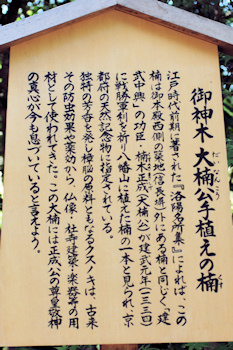 御神木 大楠公手植えの楠
だいなんこう
江戸時代前期に著された『洛陽名所集』によれば、この
楠は御本殿西側の築地(信長塀)外にある楠と同じく、建
武中興の功臣・楠木正成(大楠公)が建武元年(一三三四)
に戦勝軍利を祈り八幡山に植えた楠の一本と見られ、京
都府の天然記念物に指定されている。
独特の芳香を発し樟脳の原料ともなるクスノキは、古来
その防虫効果や薬効から、仏像・社寺建築・楽器等の用
材として使われてきた。この大楠には正成公の尊皇敬神
の真心が今も息づいていると言えよう。